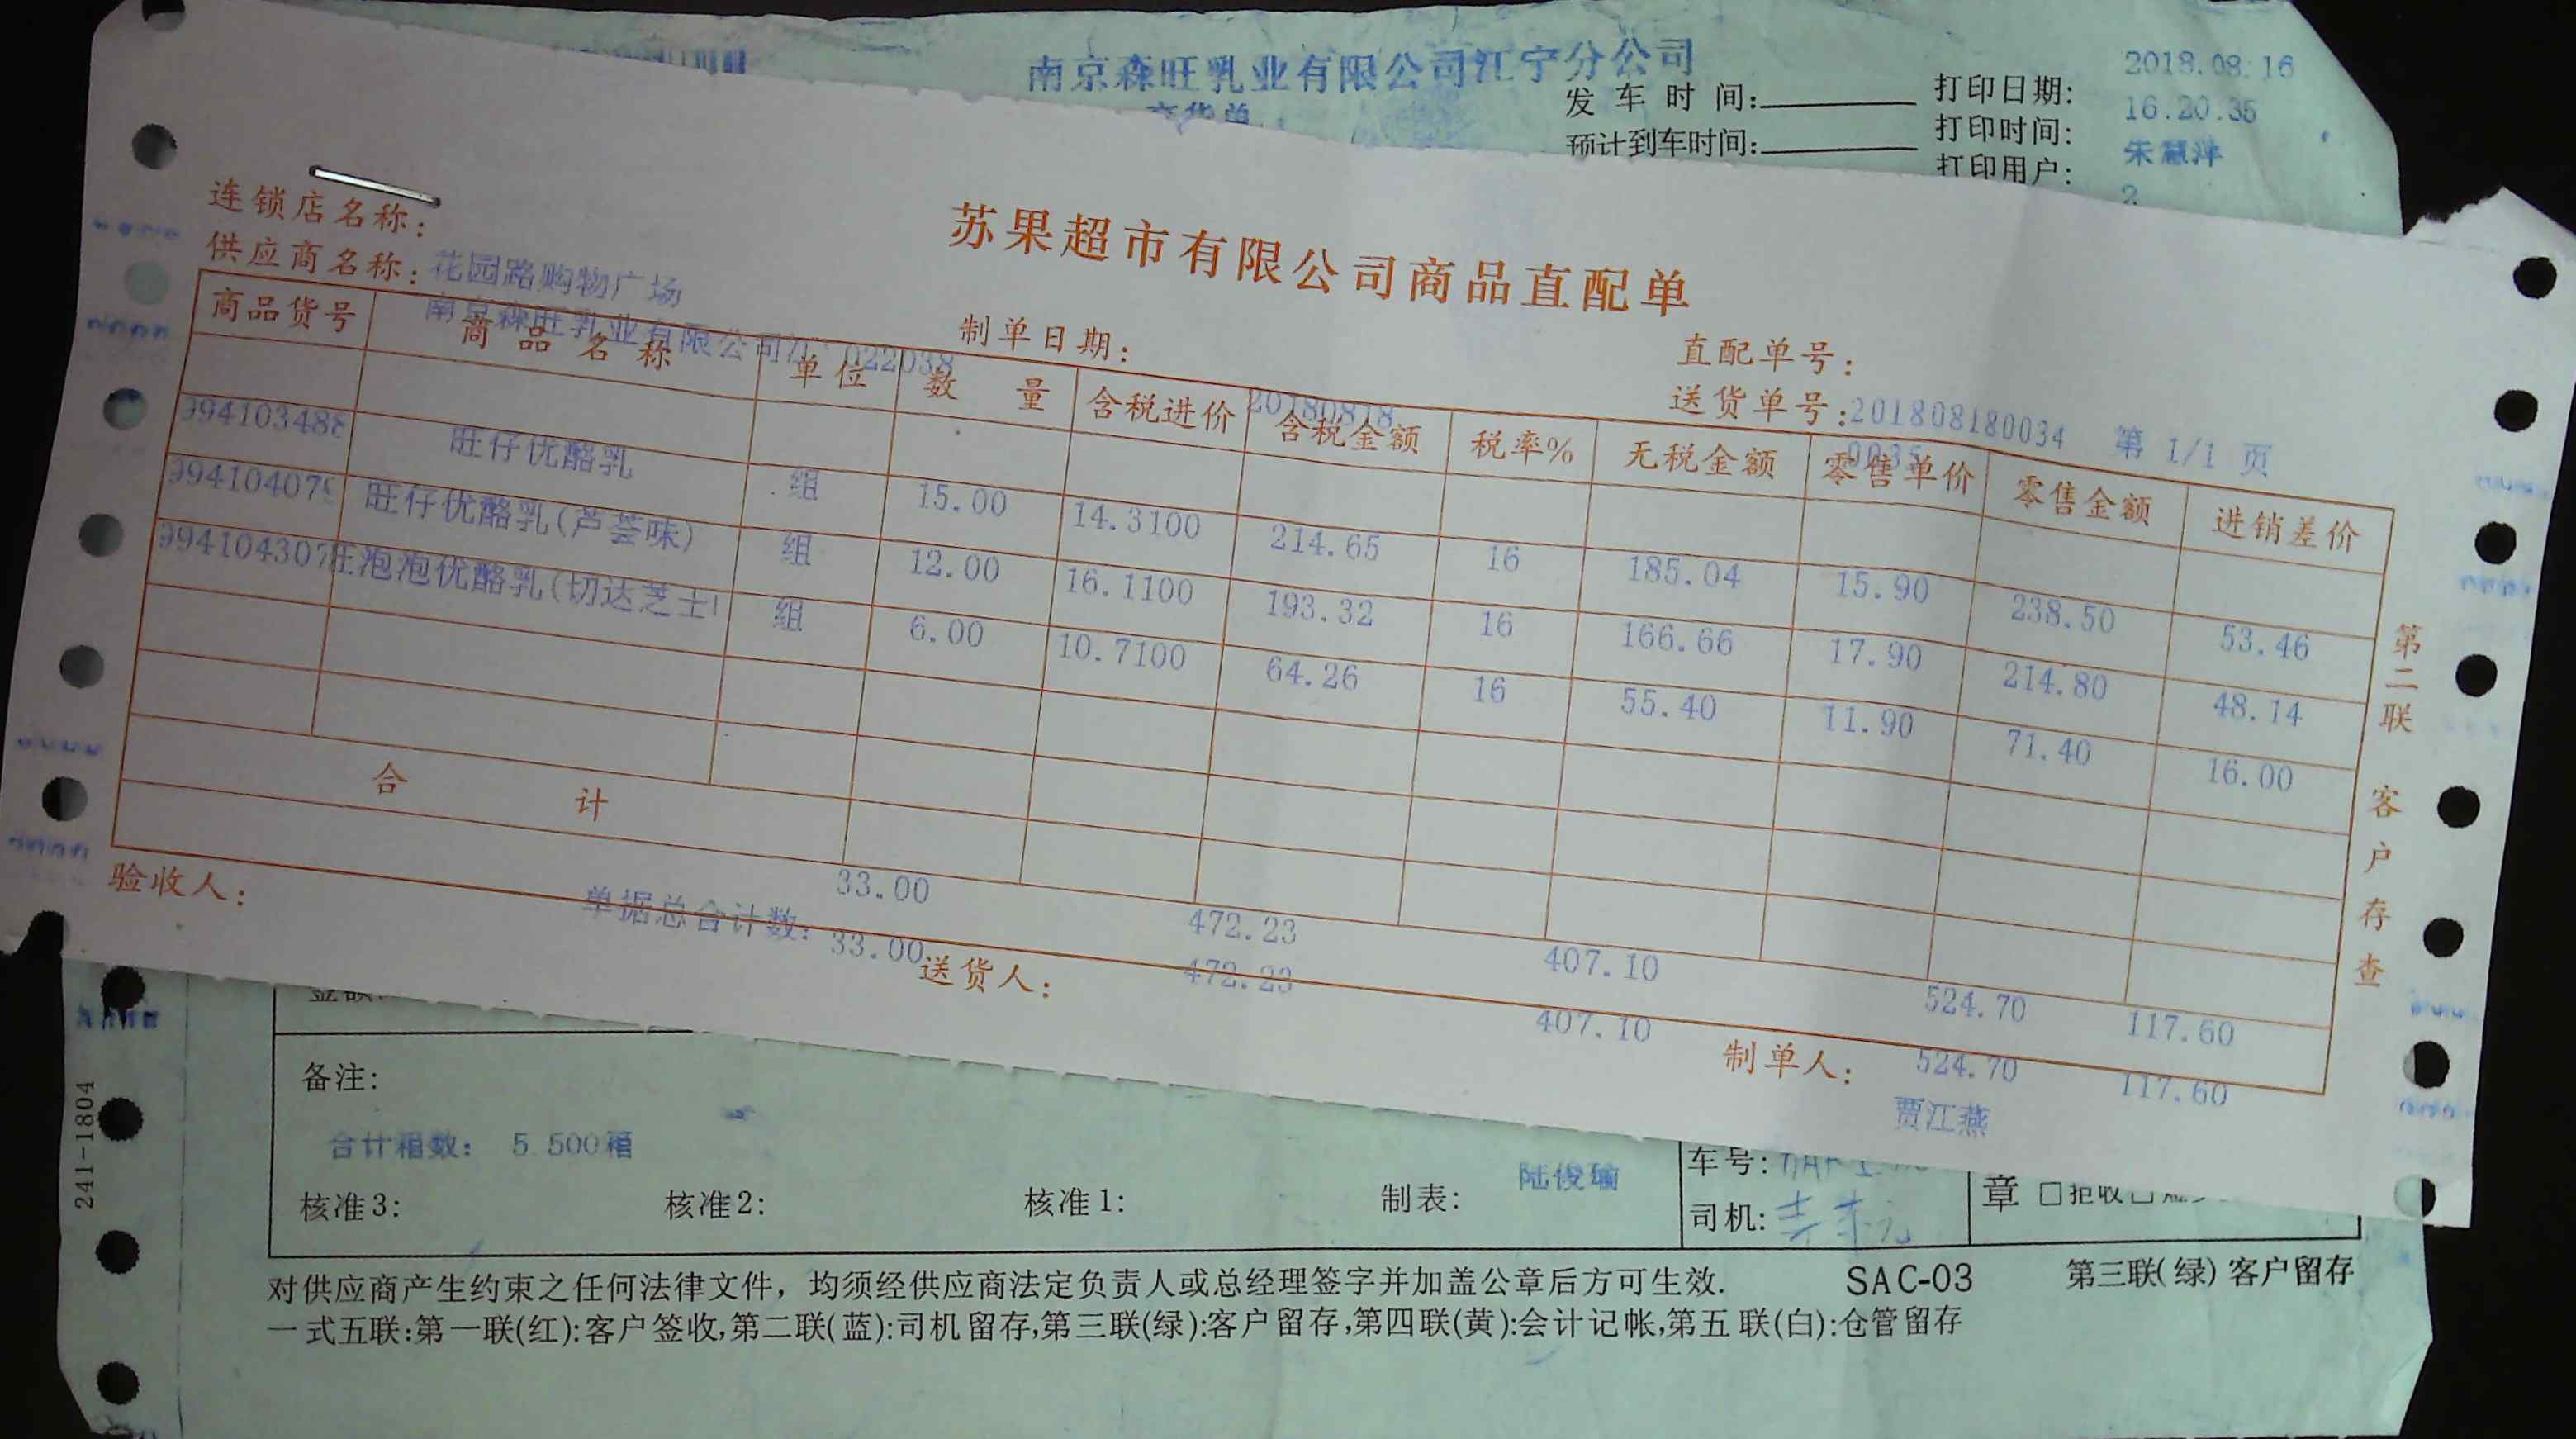 南京森旺乳业有限公司江宁分公司
发车时间: 打印日期: 2018.08.16
预计到车时间: 打印时间: 16.20.35
打印用户: 朱慧萍
2
苏果超市有限公司商品直配单
连锁店名称: 花园路购物广场
供应商名称: 南京森旺乳业有限公司江 022038
制单日期: 20180818
直配单号: 201808180034 第 1/1 页
送货单号:
商品货号 商品名称 单位 数量 含税进价 含税金额 税率% 无税金额 零售单价 零售金额 进销差价
99410348 旺仔优酪乳 组 15.00 14.3100 214.65 16 185.04 15.90 238.50 53.46
99410407 旺仔优酪乳(芦荟味) 组 12.00 16.1100 193.32 16 166.66 17.90 214.80 48.14
994104307 旺泡泡优酪乳(切达芝士 组 6.00 10.7100 64.26 16 55.40 11.90 71.40 16.00
合计 33.00 472.23 407.10 524.70 117.60
单据总合计数: 33.00 472.23 407.10 524.70 117.60
验收人: 送货人: 制单人: 贾江燕
第二联 客户存查
金额:
备注:
合计箱数: 5.500箱
核准3: 核准2: 核准1: 制表: 陆俊瑜
车号:
司机:
章 □拒收
对供应商产生约束之任何法律文件，均须经供应商法定负责人或总经理签字并加盖公章后方可生效. SAC-03 第三联(绿)客户留存
一式五联:第一联(红):客户签收,第二联(蓝):司机留存,第三联(绿):客户留存,第四联(黄):会计记帐,第五联(白):仓管留存
241-1804